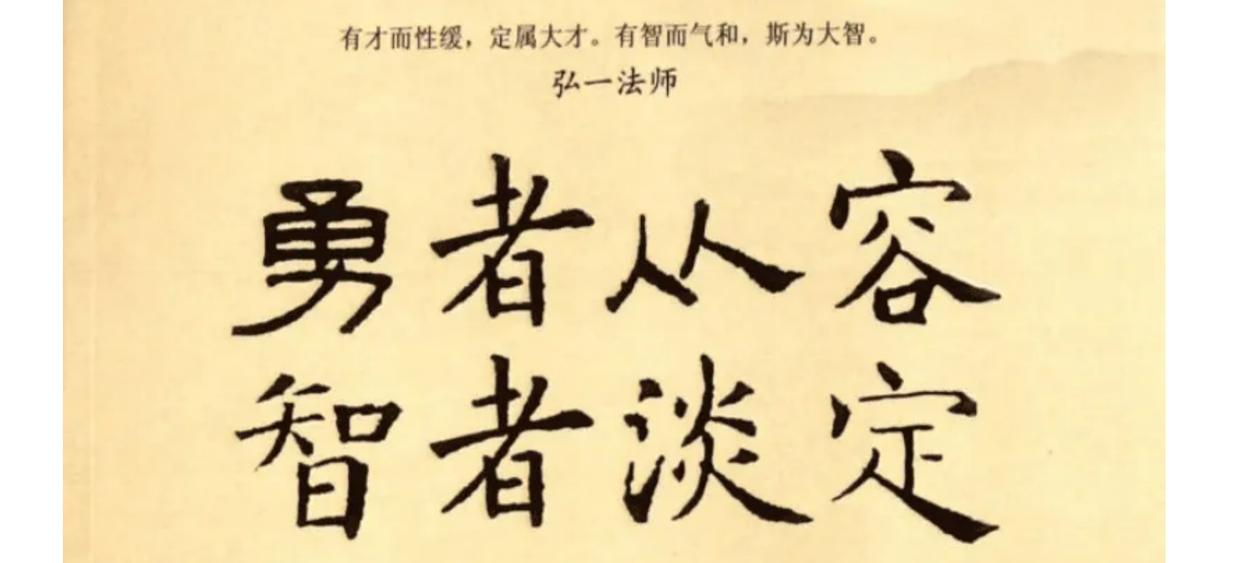 有才而性缓，定属大才。有智而气和，斯为大智。
弘一法师
勇者从容
智者淡定